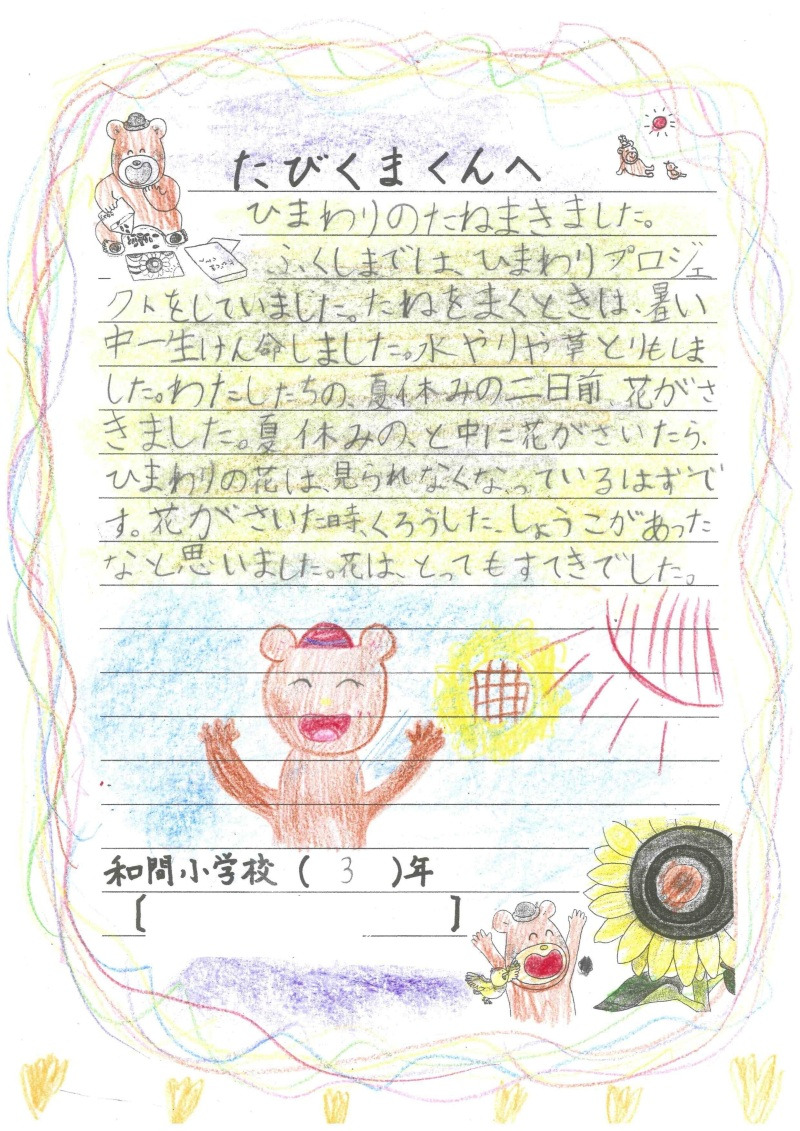 たびくまくんへ
ひまわりのたねまきました。
ふくしまでは、ひまわりプロジェ
クトをしていました。たねをまくときは、暑い
中一生けん命しました。水やりや草とりもしま
した。わたしたちの、夏休みの二日前、花がさ
きました。夏休みの、と中に花がさいたら、
ひまわりの花は、見られなくなっているはずで
す。花がさいた時、くろうした、しょうこがあった
なと思いました。花は、とってもすてきでした。
和間小学校(3)年
[ ]